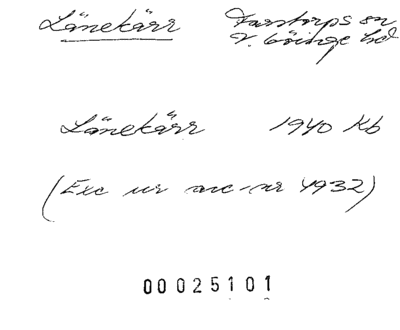 Lönekärr
Farstorps sn
V. Göinge hd
Lönekärr 1940 Kb
(Exc ur acc-nr 4932)
00025101